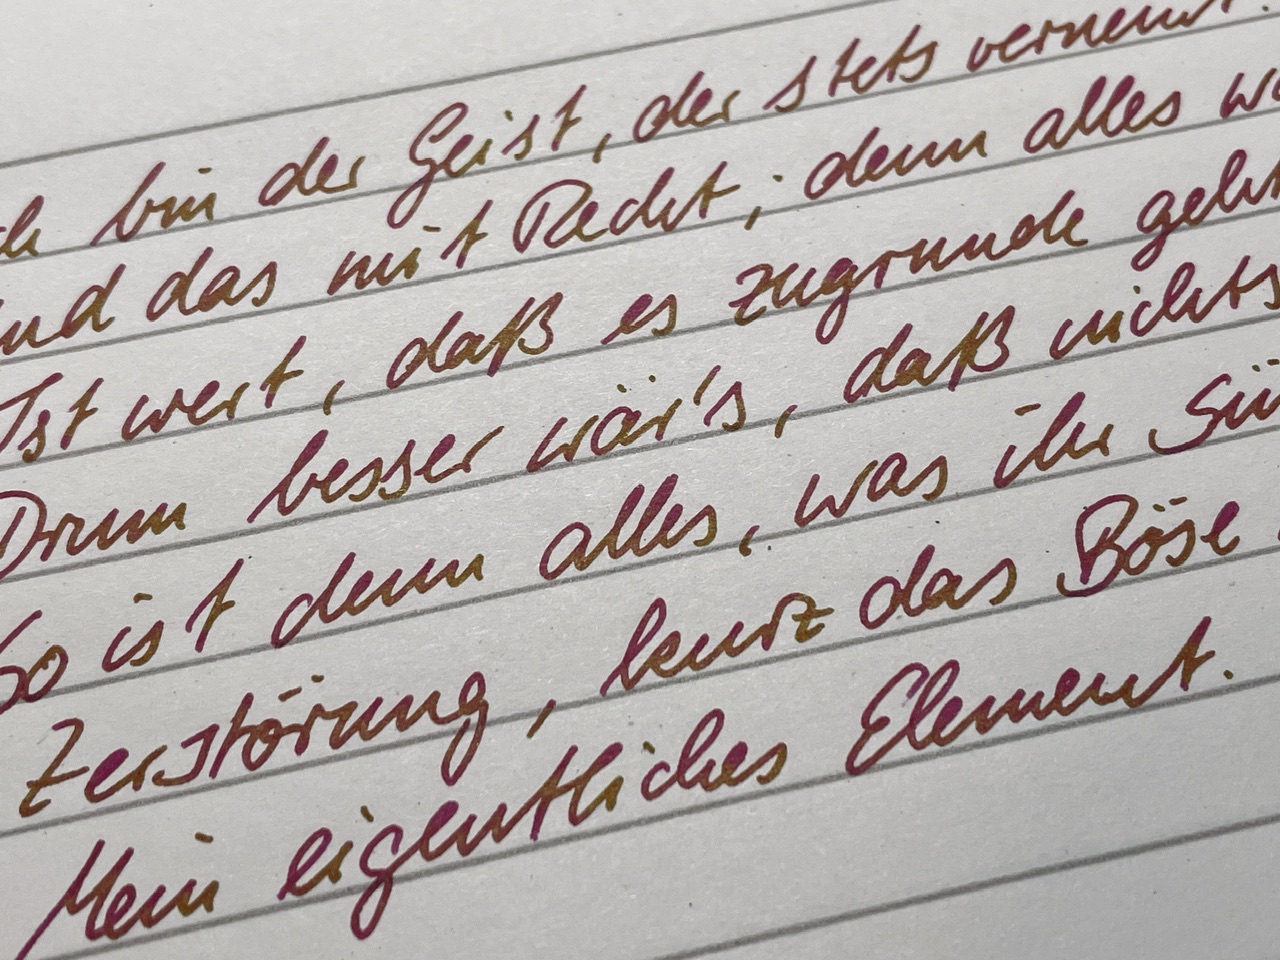 ch bin der Geist, der stets verneint!
und das mit Recht; denn alles
Ist wert, daß es zugrunde geht
Drum besser wär's, daß nichts
So ist denn alles, was ihr Sü
Zerstörung, kurz das Böse
Mein eigentliches Element.